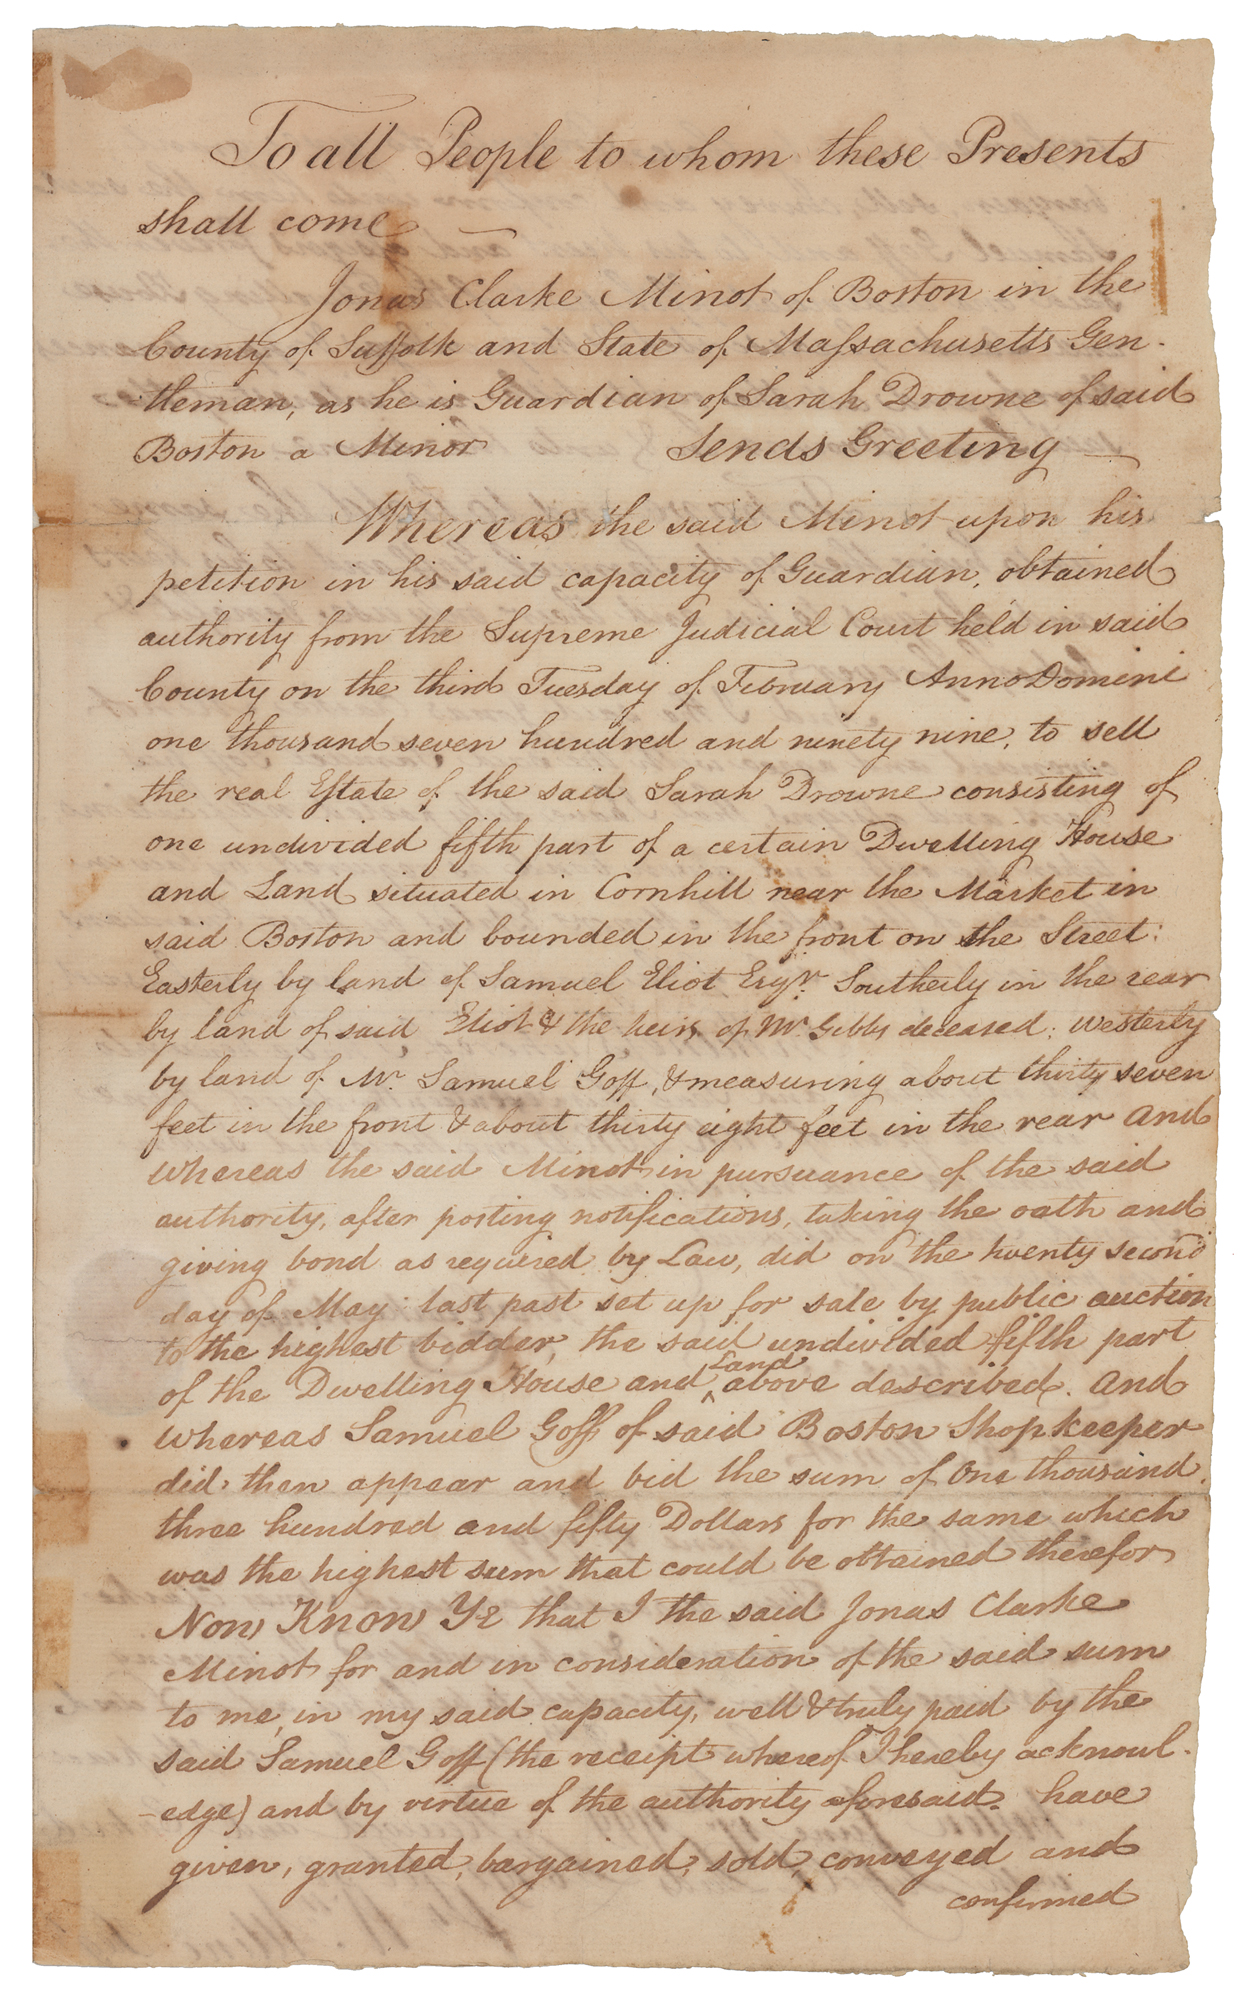 To all People to whom these Presents
shall come —
Jonas Clarke Minot of Boston in the
County of Suffolk and State of Massachusetts Gen-
tleman, as he is Guardian of Sarah Drowne of said
Boston a Minor Sends Greeting —
Whereas the said Minot upon his
petition in his said capacity of Guardian, obtained
authority from the Supreme Judicial Court held in said
County on the third Tuesday of February Anno Domini
one thousand seven hundred and ninety nine, to sell
the real Estate of the said Sarah Drowne consisting of
one undivided fifth part of a certain Dwelling House
and Land situated in Cornhill near the Market in
said Boston and bounded in the front on the Street:
Easterly by land of Samuel Eliot Esqr. Southerly in the rear
by land of said Eliot & the heirs of Mr. Gibbs deceased: Westerly
by land of Mr. Samuel Goff, & measuring about thirty seven
feet in the front & about thirty eight feet in the rear And
whereas the said Minot in pursuance of the said
authority, after posting notifications, taking the oath and
giving bond as required by Law, did on the twenty second
day of May last past set up for sale by public auction
to the highest bidder, the said undivided fifth part
of the Dwelling House and ^Land above described. And
whereas Samuel Goff of said Boston Shopkeeper
did then appear and bid the sum of One thousand
three hundred and fifty Dollars for the same which
was the highest sum that could be obtained therefor
Now Know Ye that I the said Jonas Clarke
Minot for and in consideration of the said sum
to me, in my said capacity, well & truly paid by the
said Samuel Goff (the receipt whereof I hereby acknowl-
-edge) and by virtue of the authority aforesaid. have
given, granted, bargained, sold, conveyed and
confirmed